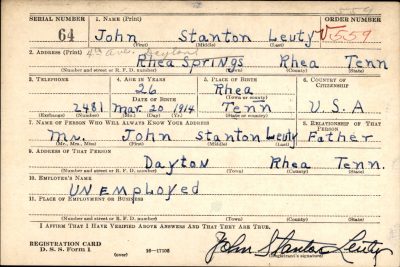 SERIAL NUMBER 1. NAME (Print) ORDER NUMBER
559
64 John Stanton Leuty V559
(First) (Middle) (Last)
2. ADDRESS (Print) 4th Ave. Dayton
Rhea Springs Rhea Tenn
(Number and street or R. F. D. number) (Town) (County) (State)
3. TELEPHONE 4. AGE IN YEARS 5. PLACE OF BIRTH 6. COUNTRY OF CITIZENSHIP
26 Rhea
DATE OF BIRTH (Town or county)
2481 Mar 20 1914 Tenn U.S.A
(Exchange) (Number) (Mo.) (Day) (Yr.) (State or country)
7. NAME OF PERSON WHO WILL ALWAYS KNOW YOUR ADDRESS 8. RELATIONSHIP OF THAT PERSON
Mr. John Stanton Leuty Father
(Mr., Mrs., Miss) (First) (Middle) (Last)
9. ADDRESS OF THAT PERSON
Dayton Rhea Tenn.
(Number and street or R. F. D. number) (Town) (County) (State)
10. EMPLOYER'S NAME
UNEMPLOYED
11. PLACE OF EMPLOYMENT OR BUSINESS
(Number and street or R. F. D. number) (Town) (County) (State)
I AFFIRM THAT I HAVE VERIFIED ABOVE ANSWERS AND THAT THEY ARE TRUE.
REGISTRATION CARD
D. S. S. Form 1 (over) 16-17105 John Stanton Leuty
(Registrant's signature)